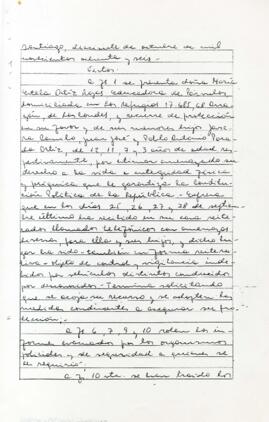 Santiago, diecisiete de octubre de mil
novecientos ochenta y seis.
Vistos:
A fs 1 se presenta doña María
Estela Ortiz Rojas Educadora de Párvulos
domiciliada en Los Refugios 17.685,
de Las Condes, y recurre de protección
en su favor y de sus menores hijos
Javiera, Camilo, Juan José y Pablo Antonio Parada
Ortiz, de 12, 11, 7 y 3 años de edad
respectivamente, por estimar amenazado su
derecho a la vida e integridad física
y psíquica que le garantiza la Constitución
Política de la República. Expresa
que en los días 25, 26, 27 y 28 de septiembre
último ha recibido en su casa
llamados telefónicos con amenazas
para ella y sus hijos, y dicho
ha sido también en forma
objeto de control y vigilancia
por vehículos distintos conducidos
por desconocidos. Termina solicitando
que se acoja su recurso y se adopten las
medidas conducentes a asegurar su protección.
A fs 6, 7, 8, 9 y 10 rolan los informes
evacuados por los organismos
policiales y de seguridad a quienes se
les requirió.
A fs 10 vta. se